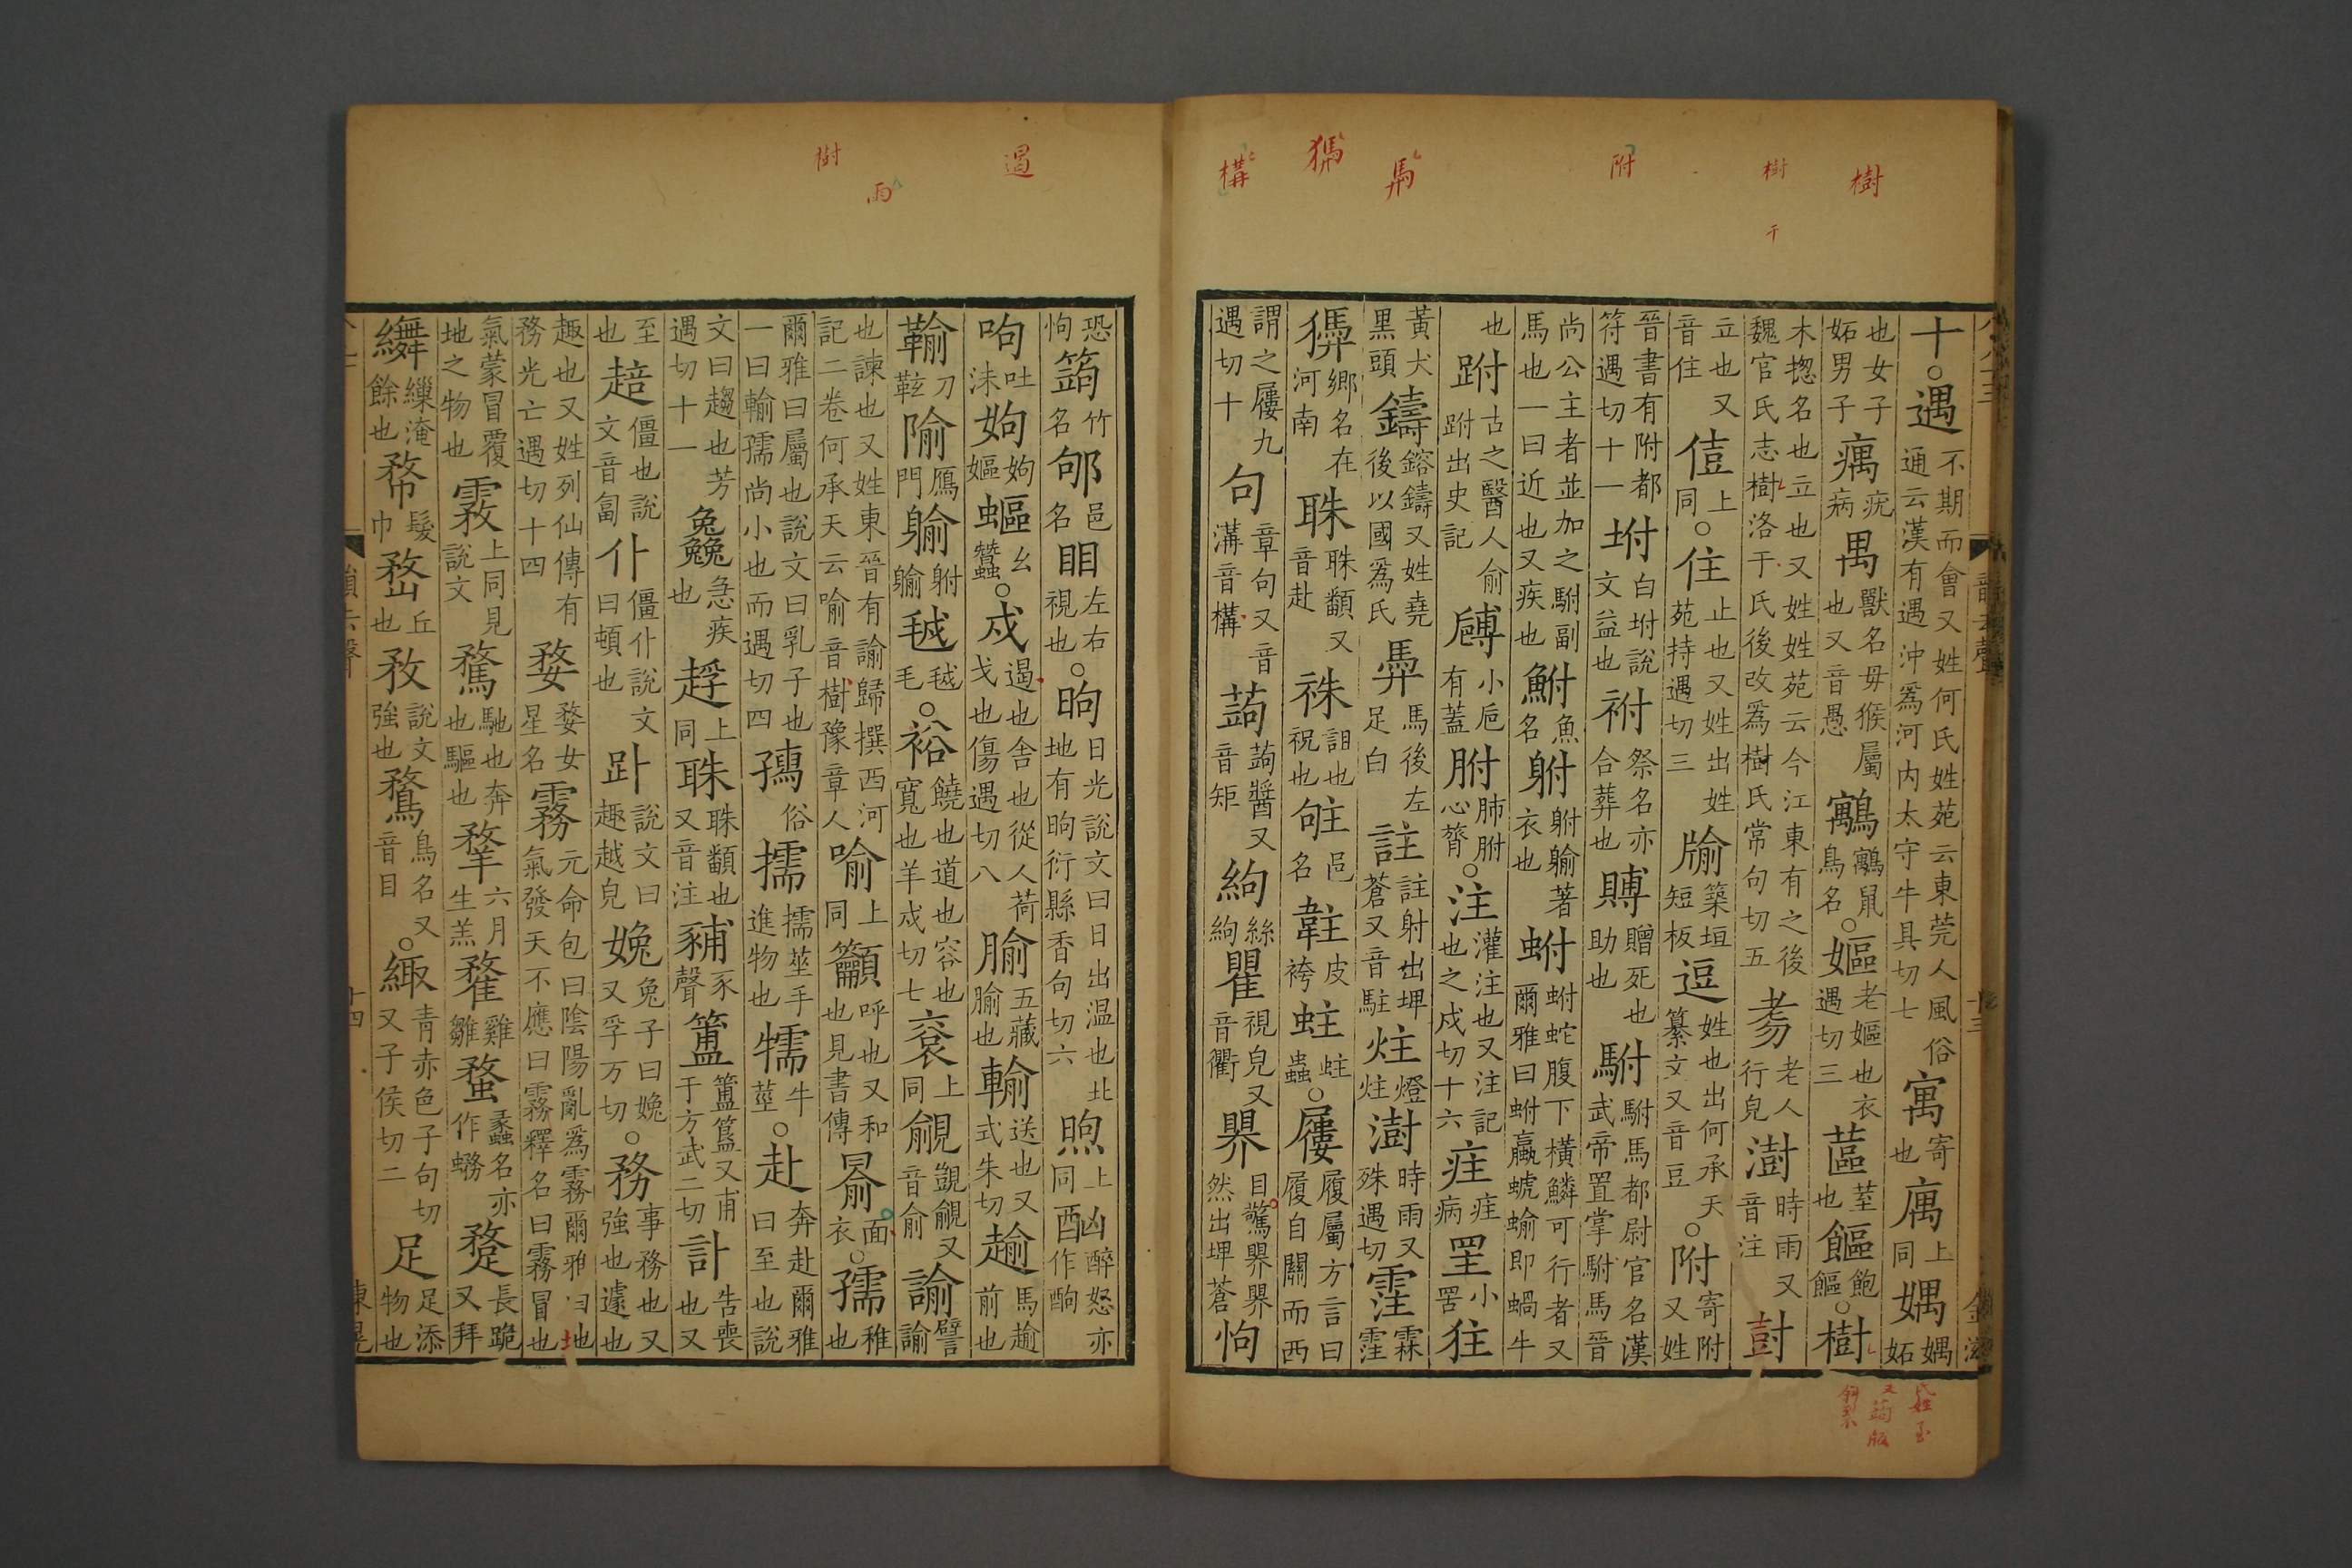 樹
樹
干
附
馬
構
十○遇不期而會又姓何氏姓苑云東莞人風俗通云漢有遇沖爲河内太守牛具切七寓寄也庽上同媀媀妬
也女子妬男子㾖疣病禺獸名母猴屬也又音愚鸆鸆鼠鳥名○嫗老嫗也衣遇切三蓲荎也饇飽饇○樹
木揔名也立也又姓姓苑云今江東有之後魏官氏志樹洛于氏後改爲樹氏常句切五𦒻老人行皃澍時雨又音注尌
立也又音住侸上同○住止也又姓出姓苑持遇切三牏築垣短板逗姓也出何承天纂文又音豆○附寄附又姓
晉書有附都符遇切十一坿白坿說文益也祔祭名亦合葬也賻贈死也助也駙駙馬都尉官名漢武帝置掌駙馬晉
尚公主者並加之駙副馬也一曰近也又疾也鮒魚名䠵䠵軀著衣也蚹蚹蛇腹下橫鱗可行者又爾雅曰蚹蠃螔蝓即蝸牛
也跗古之醫人俞跗出史記䪔小巵有蓋胕肺胕心膂○注灌注也又注記也之戍切十六疰疰病罜小罟𢓸
黃犬黒頭鑄鎔鑄又姓堯後以國爲氏馵馬後左足白註註射出埤蒼又音駐炷燈炷澍時雨又殊遇切霔霖霔
鄉名在河南䎷䎷顬又音赴袾詛也祝也邑名䪒皮袴蛀蛀蟲○屨履屬方言曰履自關而西
謂之屨九遇切十句章句又音溝音構蒟蒟醬又音矩絇絲絇瞿視皃又音衢䀠目驚䀠䀠然出埤蒼怐
氏姓
又蒟
過
雨
樹
恐怐竘竹名邑名䀠左右視也○昫日光說文曰日出温也北地有昫衍縣香句切六煦上同酗醉怒亦作酗
呴吐沫姁姁嫗蓲幺蠶○戍遏也舍也從人荷戈也傷遇切八腧五藏腧也輸送也又式朱切㔱馬㔱前也
刀鞊隃鴈門䠵軀毧毛○裕饒也道也容也寬也羊戍切七袬上同覦覬覦又音俞諭譬諭
也諫也又姓東晉有諭歸撰西河記二卷何承天云喻音樹豫章人喻上同籲呼也又和也見書傳面衣○孺稚也
爾雅曰屬也說文曰乳子也一曰輸孺尚小也而遇切四俗擩擩莖手進物也㹘牛莖○赴奔赴爾雅曰至也說
文曰趨也芳遇切十一急疾也上同䎷䎷顬也又音注豕聲簠簠簋又甫于方武二切訃告喪也又
至也踣僵也說文音匐仆僵仆說文曰頓也趴說文曰趣越皃娩兔子曰娩又孚万切○務事務也又強也遽也
趣也又姓列仙傳有務光亡遇切十四婺婺女星名霧元命包曰陰陽亂爲霧爾雅曰地氣發天不應曰霧釋名曰霧冒也
氣蒙冒覆地之物也雺上同見說文騖馳也奔也驅也䍮六月生羔雞雛蝥蟊名亦作蝥長跪又拜
纀繅淹餘也髳髮巾堥丘也敄說文強也鶩鳥名又音目○緅青赤色子句切又子侯切二足足添物也